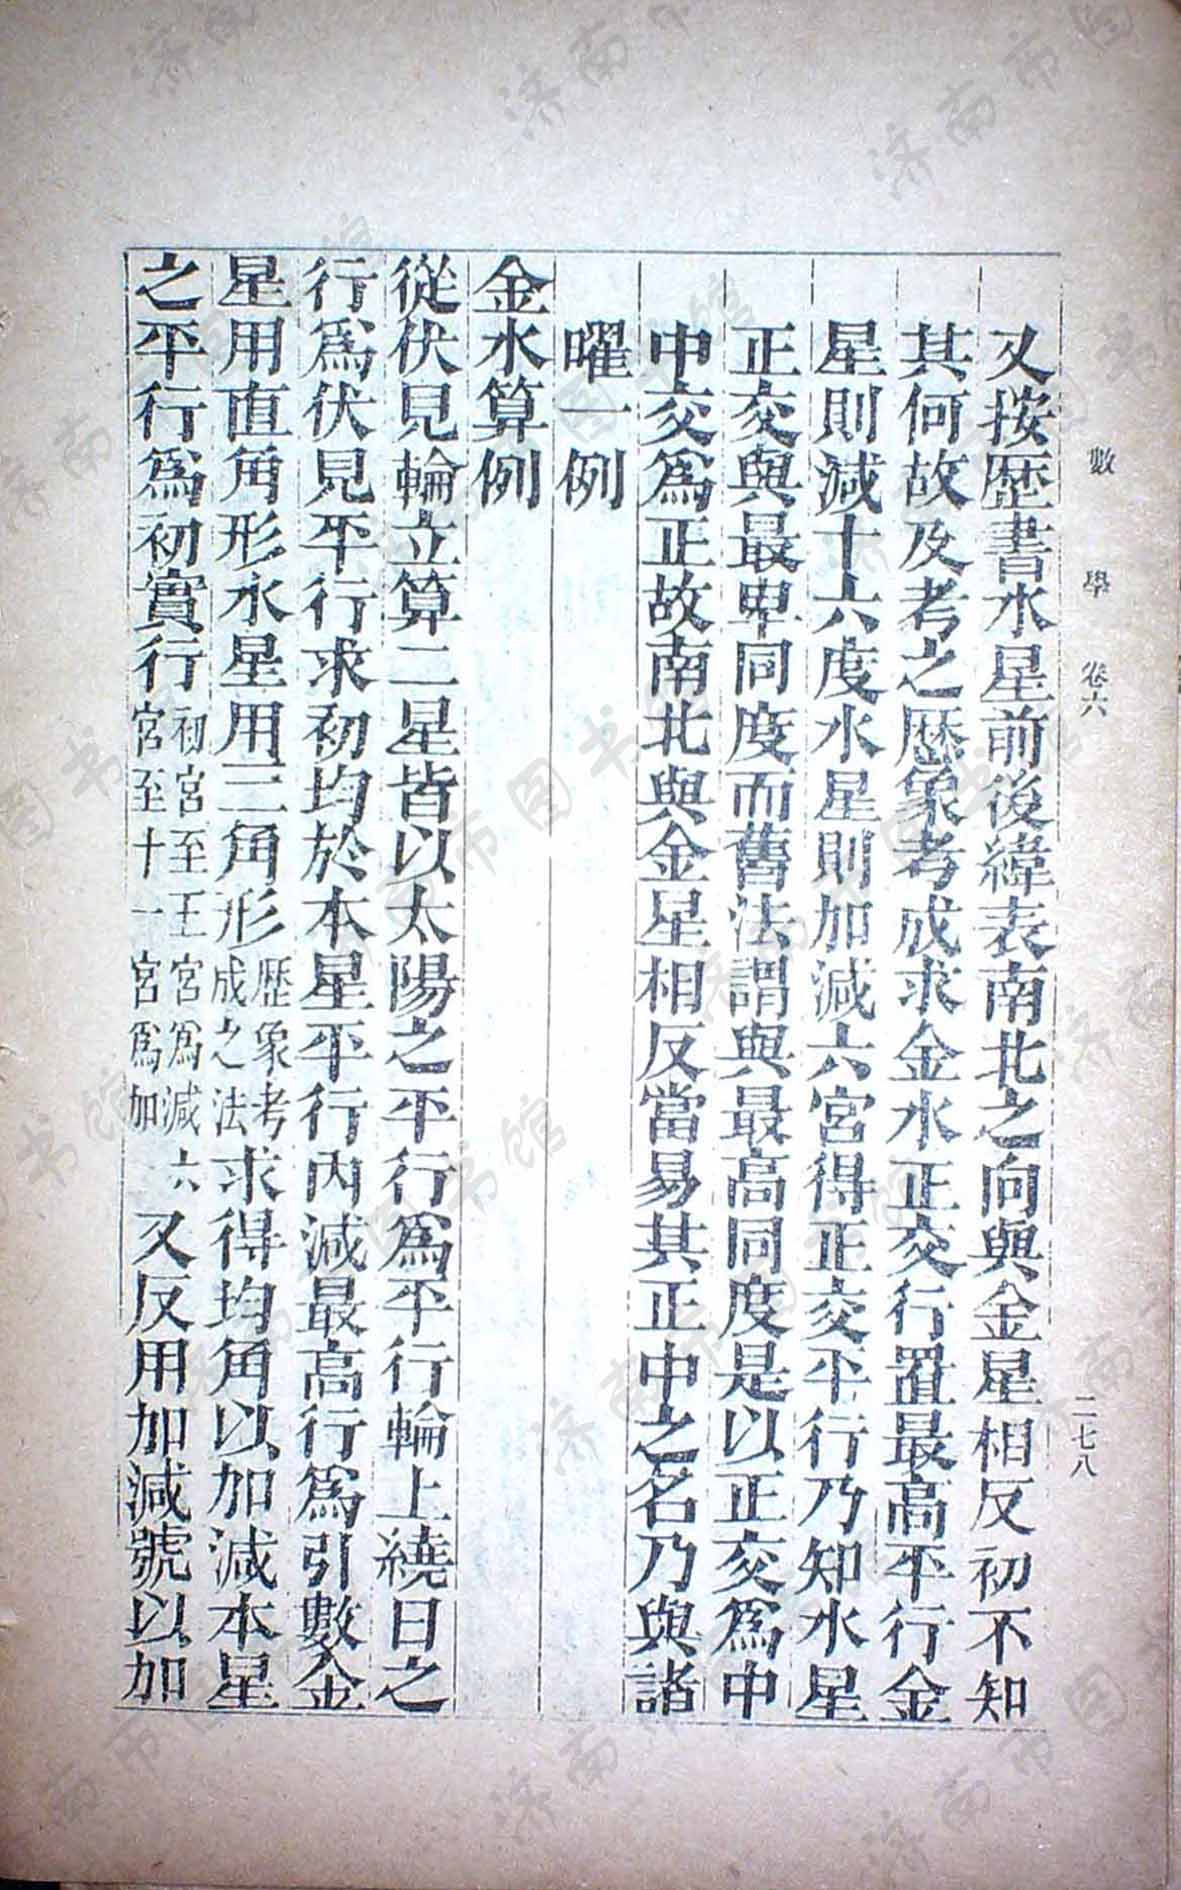 數學 卷六 二七八
又按歴書水星前後緯表南北之向與金星相反初不知
其何故及考之歴象考成求金水正交行置最高平行金
星則減十六度水星則加減六宮得正交平行乃知水星
正交與最卑同度而舊法謂與最高同度是以正交為中
中交為正故南北與金星相反當易其正中之名乃與諸
曜一例
金水算例
從伏見輪立算二星皆以太陽之平行為平行輪上繞日之
行為伏見平行求初均於本星平行內減最高行為引數金
星用直角形水星用三角形歴象考成之法求得均角以加減本星
之平行為初實行初宮至五宮為減六宮至十一宮為加又反用加減號以加
济南市图书馆